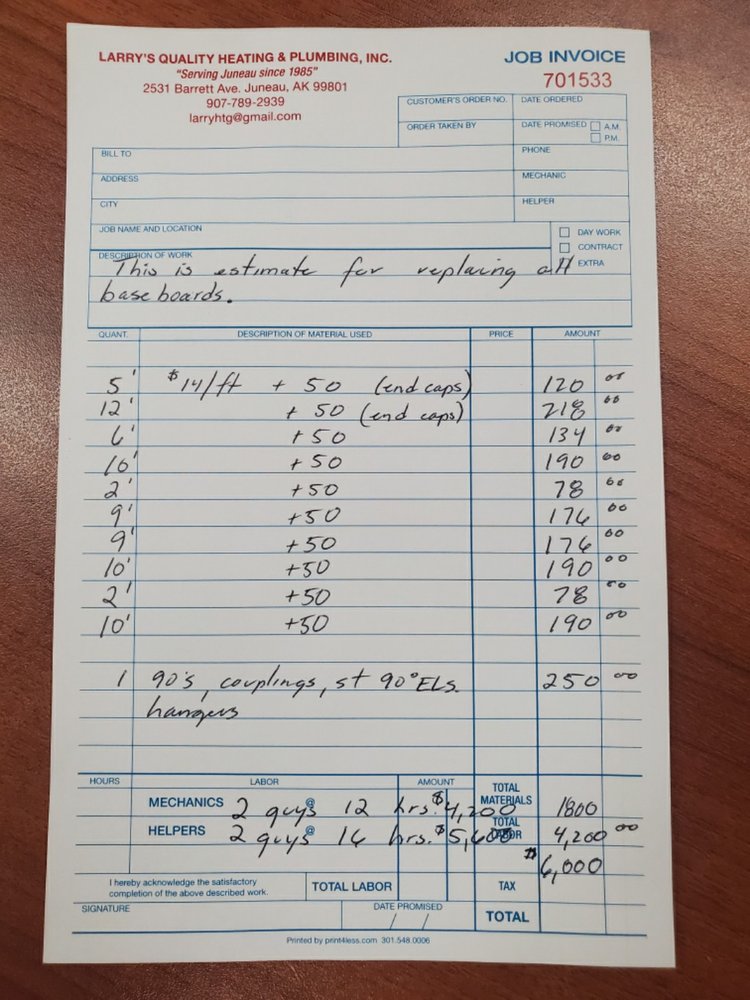 LARRY'S QUALITY HEATING & PLUMBING, INC.
"Serving Juneau since 1985"
2531 Barrett Ave. Juneau, AK 99801
907-789-2939
larryhtg@gmail.com
JOB INVOICE
701533
CUSTOMER'S ORDER NO. DATE ORDERED
ORDER TAKEN BY DATE PROMISED A.M.
P.M.
BILL TO PHONE
ADDRESS MECHANIC
CITY HELPER
JOB NAME AND LOCATION
DAY WORK
CONTRACT
EXTRA
DESCRIPTION OF WORK
This is estimate for replacing all
baseboards.
QUANT. DESCRIPTION OF MATERIAL USED PRICE AMOUNT
5' $14/ft + 50 (end caps) 120 00
12' + 50 (end caps) 218 00
6' +50 134 00
10' +50 190 00
2' +50 78 00
9' +50 176 00
9' +50 176 00
10' +50 190 00
2' +50 78 00
10' +50 190 00
1 90's, couplings, st 90° ELs. 250 00
hangers
HOURS LABOR AMOUNT TOTAL MATERIALS 1800
MECHANICS 2 guys @ 12 hrs. $4,200
HELPERS 2 guys @ 16 hrs. $5,600 TOTAL LABOR 4,200 00
$6,000
I hereby acknowledge the satisfactory
completion of the above described work.
TOTAL LABOR TAX
SIGNATURE DATE PROMISED / / TOTAL
Printed by print4less.com 301.548.0006